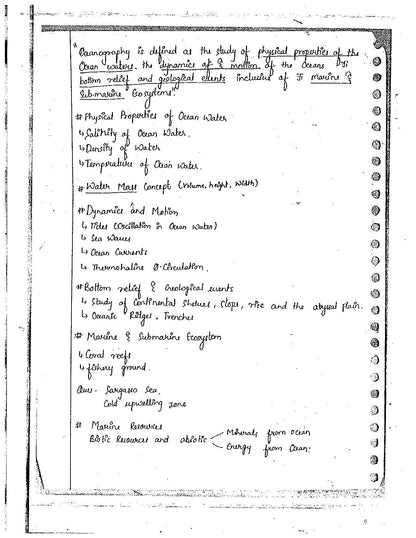 "Oceanography is defined as the study of physical properties of the
Ocean waters. the dynamics of & motion of the Oceans
bottom relief and geological events inclusive of marine &
Sub-marine Ecosystems."
# Physical Properties of Ocean Water
↳ Salinity of Ocean Water.
↳ Density of Water
↳ Temperature of Ocean Water.
# Water Mass Concept (Volume, height, width)
# Dynamics and Motion
↳ Tides (Oscillation in Ocean Water)
↳ Sea Waves
↳ Ocean Currents
↳ Thermohaline Circulation.
# Bottom relief & Geological events
↳ Study of Continental Shelves, Slope, rise and the abyssal plain.
↳ Oceanic Ridges, Trenches
# Marine & Submarine Ecosystem
↳ Coral reefs
↳ fishery ground.
Ques - Sargasso Sea.
Cold upwelling zone
# Marine Resources
Biotic Resources and abiotic
Minerals from ocean
Energy from Ocean.
6